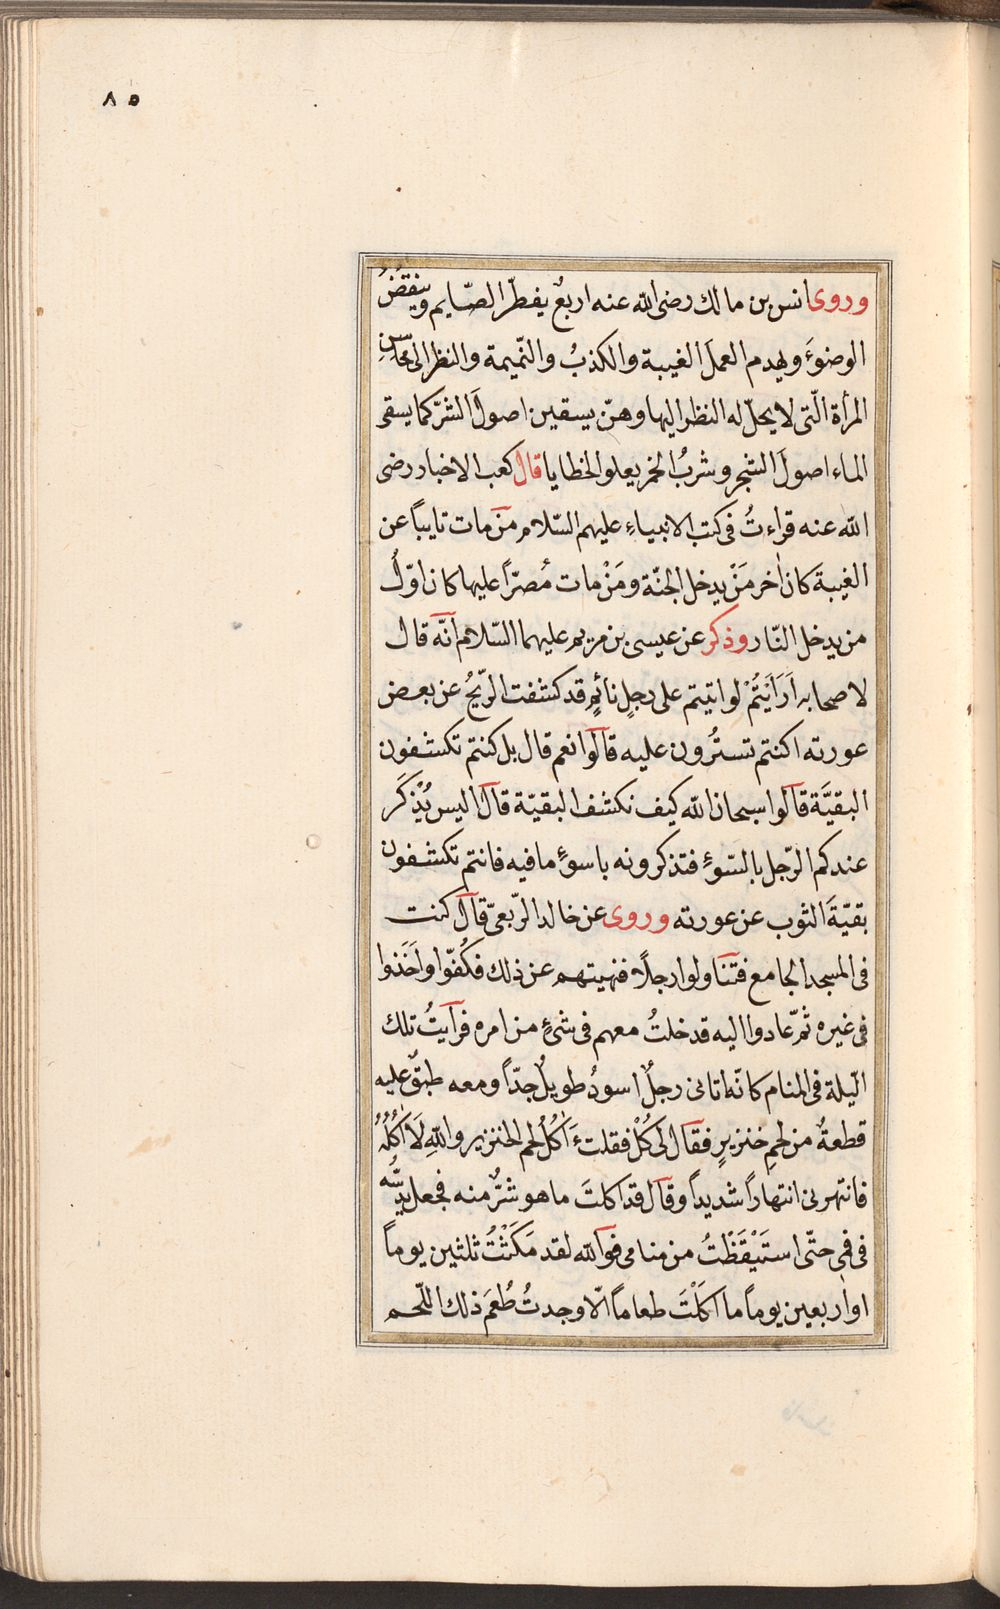 ٨٥
وروى انس بن مالك رضى الله عنه اربعٌ يفطّر الصّايم وينقضُ
الوضوءَ ويهدم العملَ الغيبة والكذبُ والنّميمة والنظر الى محاسنِ
المرأة الّتى لا يحلّ له النظر اليها وهنّ يسقين اصولَ الشرّ كما يسقى
الماء اصولَ الشجر وشربُ الخمر يعلو الخطايا قال كعب الاخبار رضى
الله عنه قراءتُ فى كتب الانبياءِ عليهم السّلام من مات تايباً عن
الغيبة كان اٰخر مَنْ يدخل الجنّة ومَنْ مات مُصرّاً عليها كان اوّلُ
من يدخل النّار وذكر عن عيسى بن مريم عليهما السّلام انّه قال
لاصحابه اَرَاَيْتُمْ لو اتيتم على رجلٍ نائمٍ قد كشفت الرّيحُ عن بعض
عورته اكنتم تستُرون عليه قالوا نعم قال بل كنتم تكشفون
البقيَّة قالوا سبحان الله كيف نكشف البقيّة قال اليس يُذْكَر
عندكم الرّجل بالسّوءِ فتذكرونه باسوءٍ ما فيه فانتم تكشفون
بقيّةَ الثوب عن عورته وروى عن خالد الرّبعىّ قال كنت
فى المسجد الجامع فتناولوا رجلًا فنهيتهم عن ذلك فكُفّوا واَخَذوا
فى غيره ثمّ عادوا اليه قد خلتُ معهم فى شىءٍ من امره فرآيتُ تلك
الّيلة فى المنام كانّه اتانى رجلٌ اسودُ طويلٌ جدّاً ومعه طبقٌ عليه
قطعةٌ من لحمِ خنزيرٍ فقال لى كُلْ فقلت ءَاٰكُلُ لحم الخنزير واللهِ لَا اٰكُلُهُ
فانتهرنى انتهاراً شديداً وقال قد اكلتَ ما هو شرٌّ منه فجعل يدسُّه
فى فمى حتّى استَيْقَظْتُ من منامى فوالله لقد مَكَثْتُ ثلثين يوماً
او اربعين يوماً ما اكَلْتَ طعاماً الّا وجدتُ طُعَم ذلك اللّحم